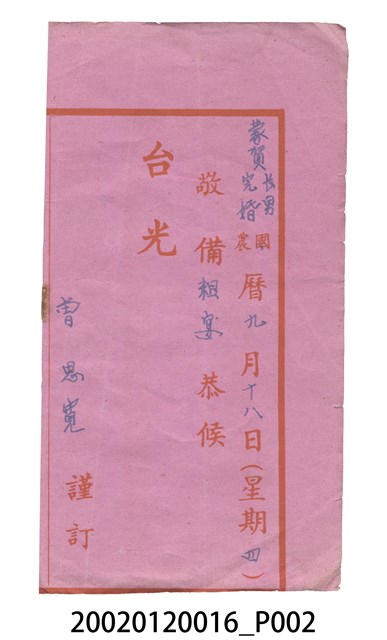 蒙賀長男完婚
國農曆九月十八日(星期四)
敬備粗宴恭候
台光
曾思寬謹訂
20020120016_P002